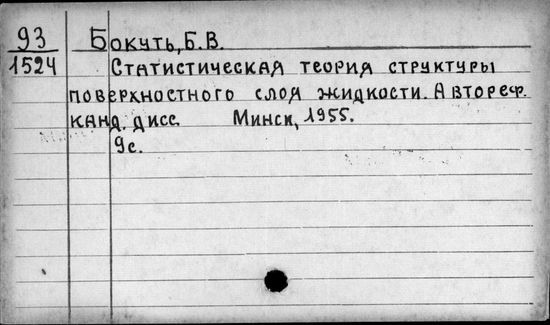 93
1524
Бокуть, Б. В.
Статистическая теория структуры
поверхностного слоя жидкости. Автореф.
канд. дисс. Минск, 1955.
9с.